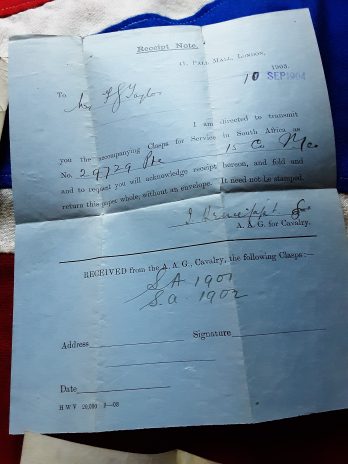 Receipt Note.
11, PALL MALL, LONDON,
1903.
10 SEP 1904
To F J Taylor
I am directed to transmit
you the accompanying Clasps for Service in South Africa as
No. 29729 Pte 15 Co
and to request you will acknowledge receipt hereon, and fold and
return this paper whole, without an envelope. It need not be stamped.
A. A. G. for Cavalry.
RECEIVED from the A. A. G., Cavalry, the following Clasps:—
S.A. 1901
S.a. 1902
Address Signature
Date
H W V 20,000 9—03